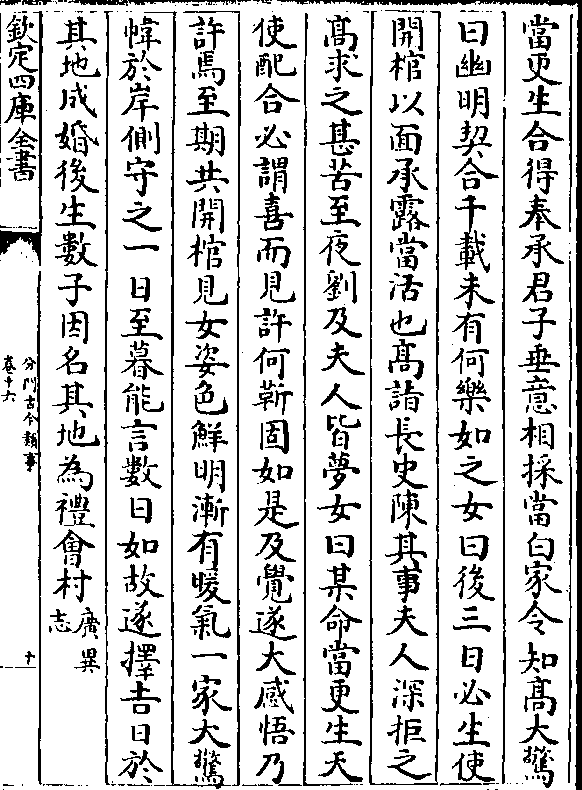 當更生合得奉承君子垂意相採當白家令知髙大驚
曰幽明契合千載未有何樂如之女曰後三日必生使
開棺以面承露當活也髙詣長史陳其事夫人深拒之
髙求之甚苦至夜劉及夫人皆夢女曰某命當更生天
使配合必謂喜而見許何靳固如是及覺遂大感悟乃
許焉至期共開棺見女姿色鮮明漸有暖氣一家大驚
幃於岸側守之一日至暮能言數日如故遂擇吉日於
其地成婚後生數子因名其地為禮會村廣異志
欽定四庫全書
分門古今類事
卷十六
十